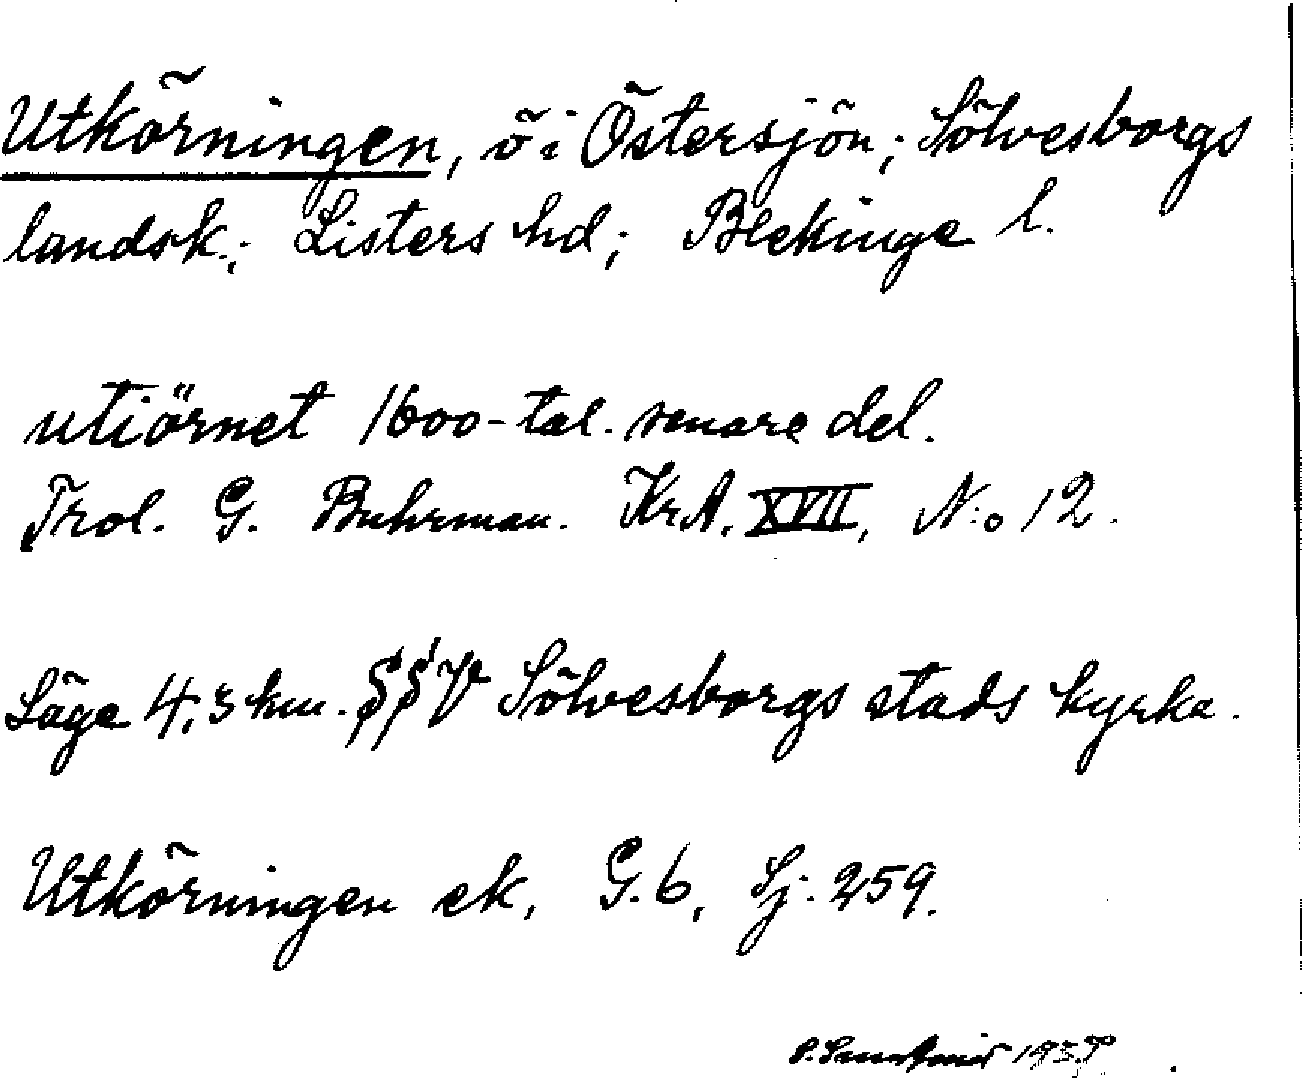 Utkörningen, ö i Östersjön; Sölvesborgs
landsk.; Listers hd; Blekinge l.
utiörnet 1600-tal. senare del.
Trol. G. Buhrman. KrA. XVII, N:o 12.
Läge 4,3 km. SSV Sölvesborgs stads kyrka.
Utkörningen ek, G. 6, Sj: 259.